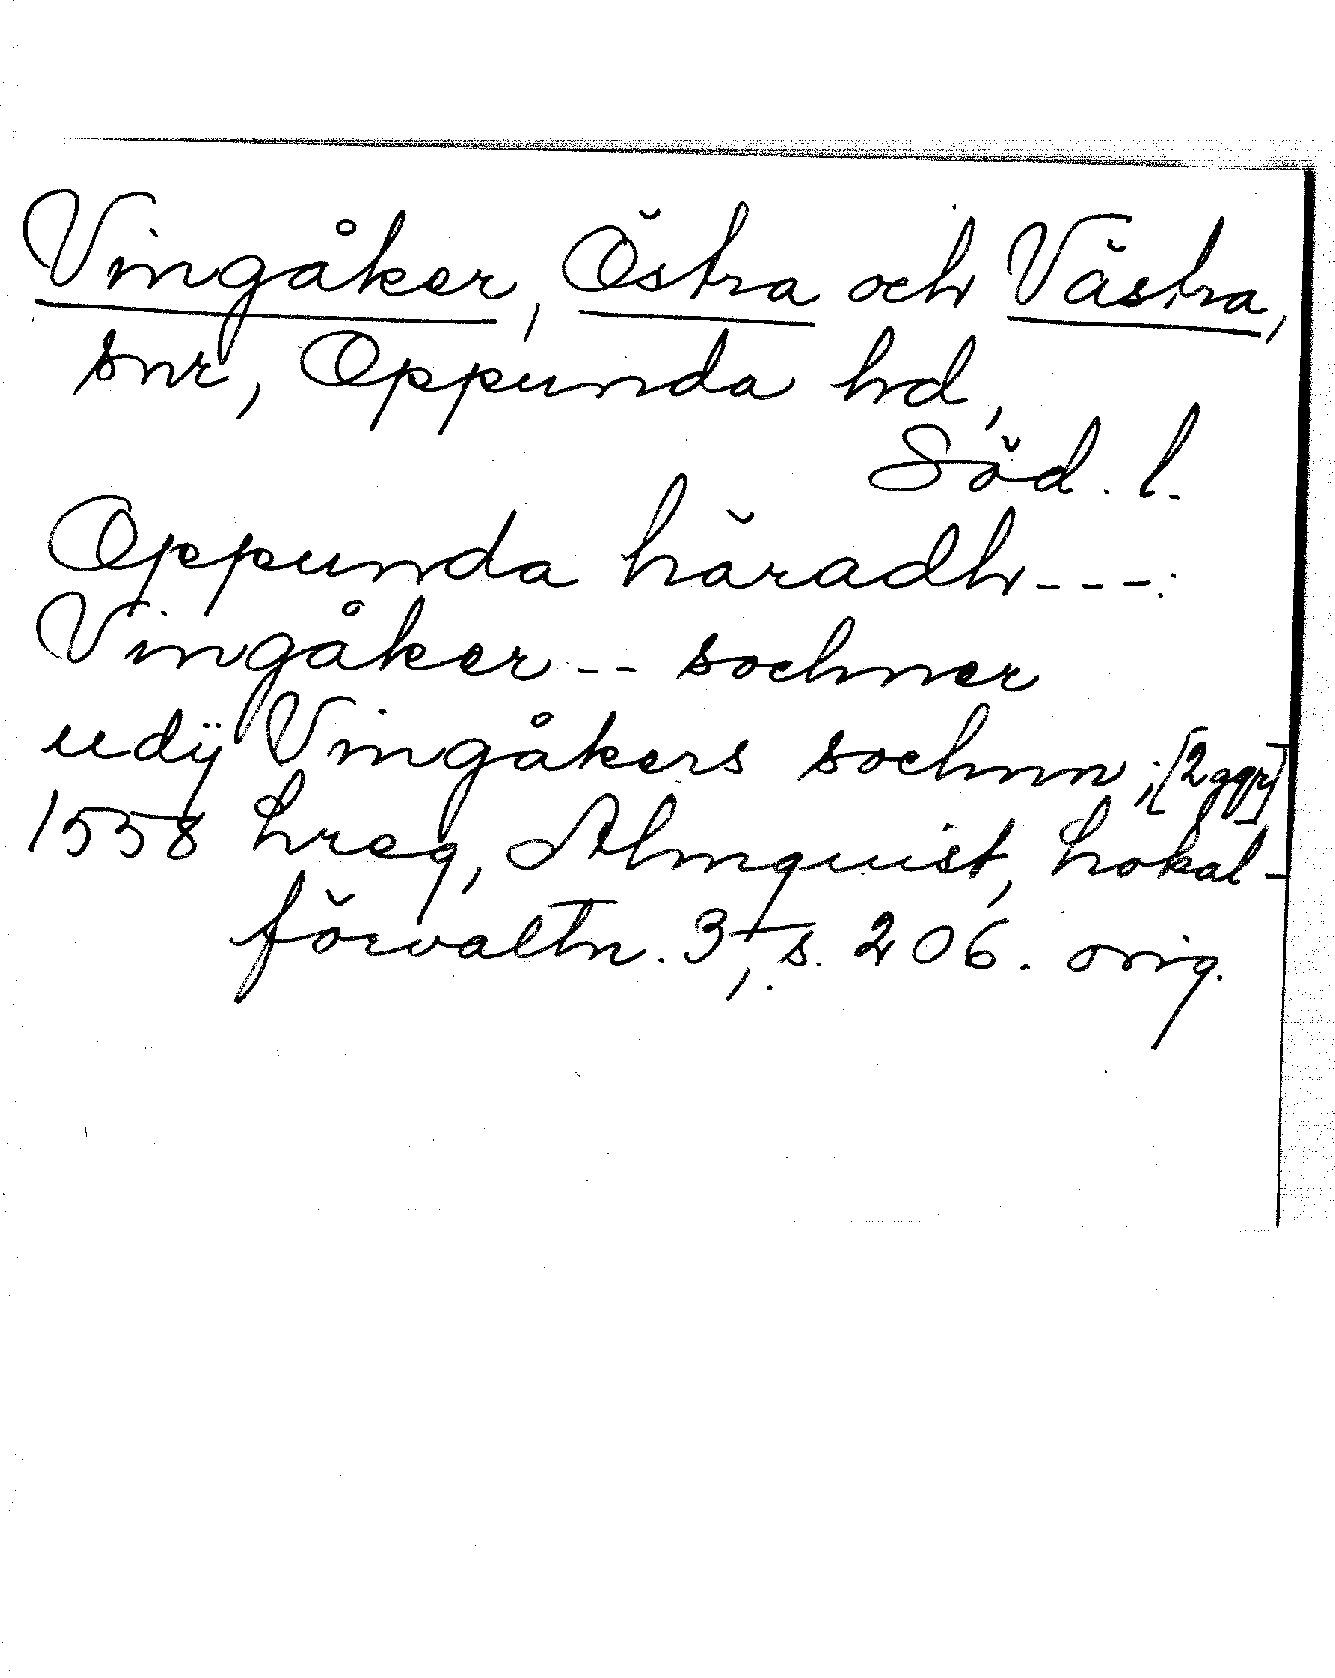 Vingåker, Östra och Västra,
snr, Oppunda hd,
Söd. l.
Oppunda häradh---.
Vingåker -- sochner
udÿ Vingåkers sochnn; [2 ggr]
1558 hreg, Almquist, Lokal-
förvaltn. 3, s. 206. orig.